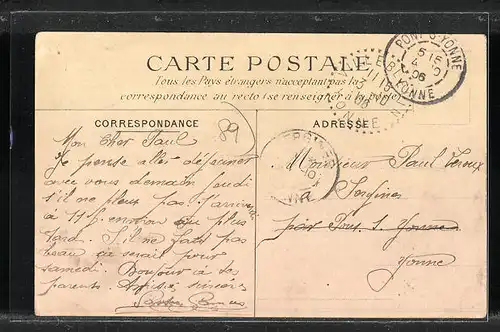 CARTE POSTALE
Tous les Pays étrangers n'acceptant pas la
correspondance au recto (se renseigner à la poste)
CORRESPONDANCE
ADRESSE
89
PONT-S-YONNE
5 15
4 10
06
YONNE
Mon Cher Paul
Je pense aller déjeuner
avec vous demain jeudi
s'il ne pleut pas j'arrive
à 11 h. environ ou plus
tard. S'il ne fait pas
beau ça serait pour
samedi. Bonjour à tes
parents. Amitié sincère
Monsieur Paul
à
par Pont s. Yonne
Yonne